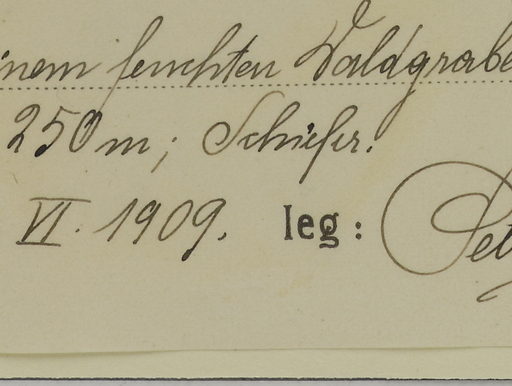 inem feuchten Waldgrabe
250m; Schiefer.
VI. 1909. leg: Pet